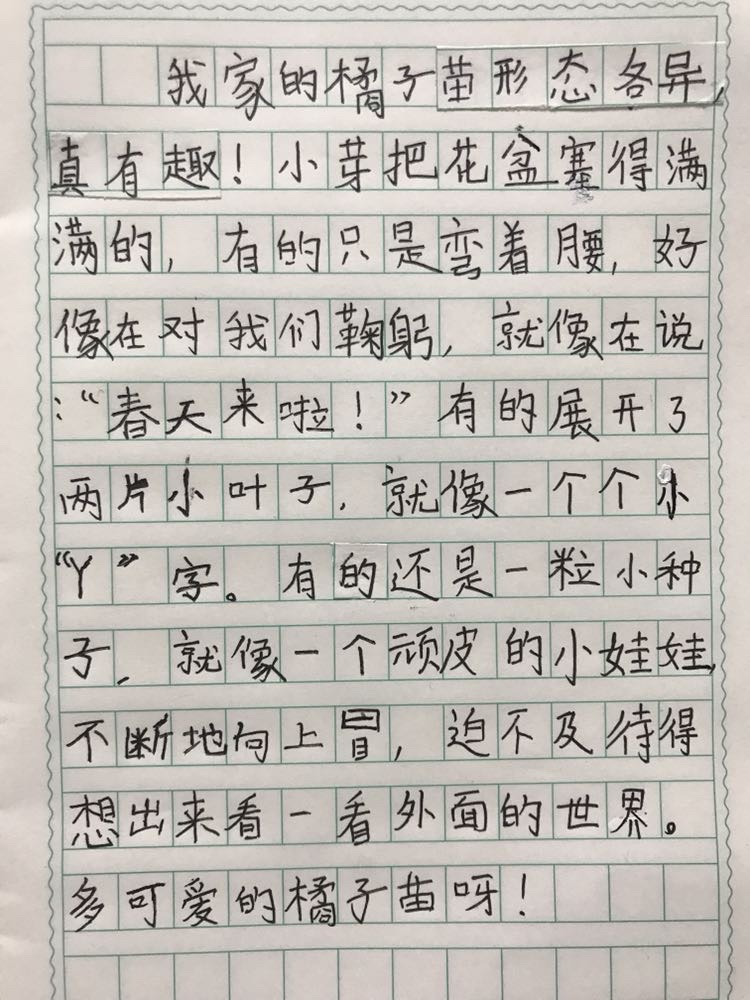 我家的橘子苗形态各异,
真有趣!小芽把花盆塞得满
满的,有的只是弯着腰,好
像在对我们鞠躬,就像在说
:“春天来啦!”有的展开了
两片小叶子,就像一个个小
“Y”字。有的还是一粒小种
子,就像一个顽皮的小娃娃,
不断地向上冒,迫不及待得
想出来看一看外面的世界。
多可爱的橘子苗呀!